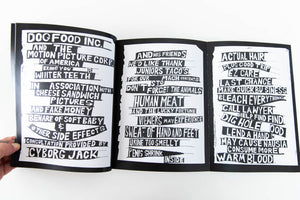 DOGFOOD INC.
AND THE
MOTION PICTURE CORP
OF AMERICA
WHITER TEETH
IN ASSOCIATION WITH
CHEESE SANDWICH
PICTURES
AND FAKE MONEY
BEWARE OF SOFT BABY
& OTHER SIDE EFFECTS
CONSULTATION PROVIDED BY
CYBORG JACK
AND FRIENDS
WE'D LIKE THANK
JUNIORS TACO'S
DON'T FORGET THE ANIMALS
HUMAN MEAT
AND THE LUCKY FEW
VIEWERS MAY EXPERIENCE
SWEATY HAND AND FEET
URINE TOO SMELLY
PENIS SHRINK
INSIDE
ACTUAL HAIR
GOOD TRIP
EZ CARE
LAST CHANCE
MAKE QUICK BUSINESS
BLEACH EVERYTHING
CALL LAWYER
FIND
DIG HOLE
LEND A HAND
MAY CAUSE NAUSIA
CONSUME MORE
WARM BLOOD